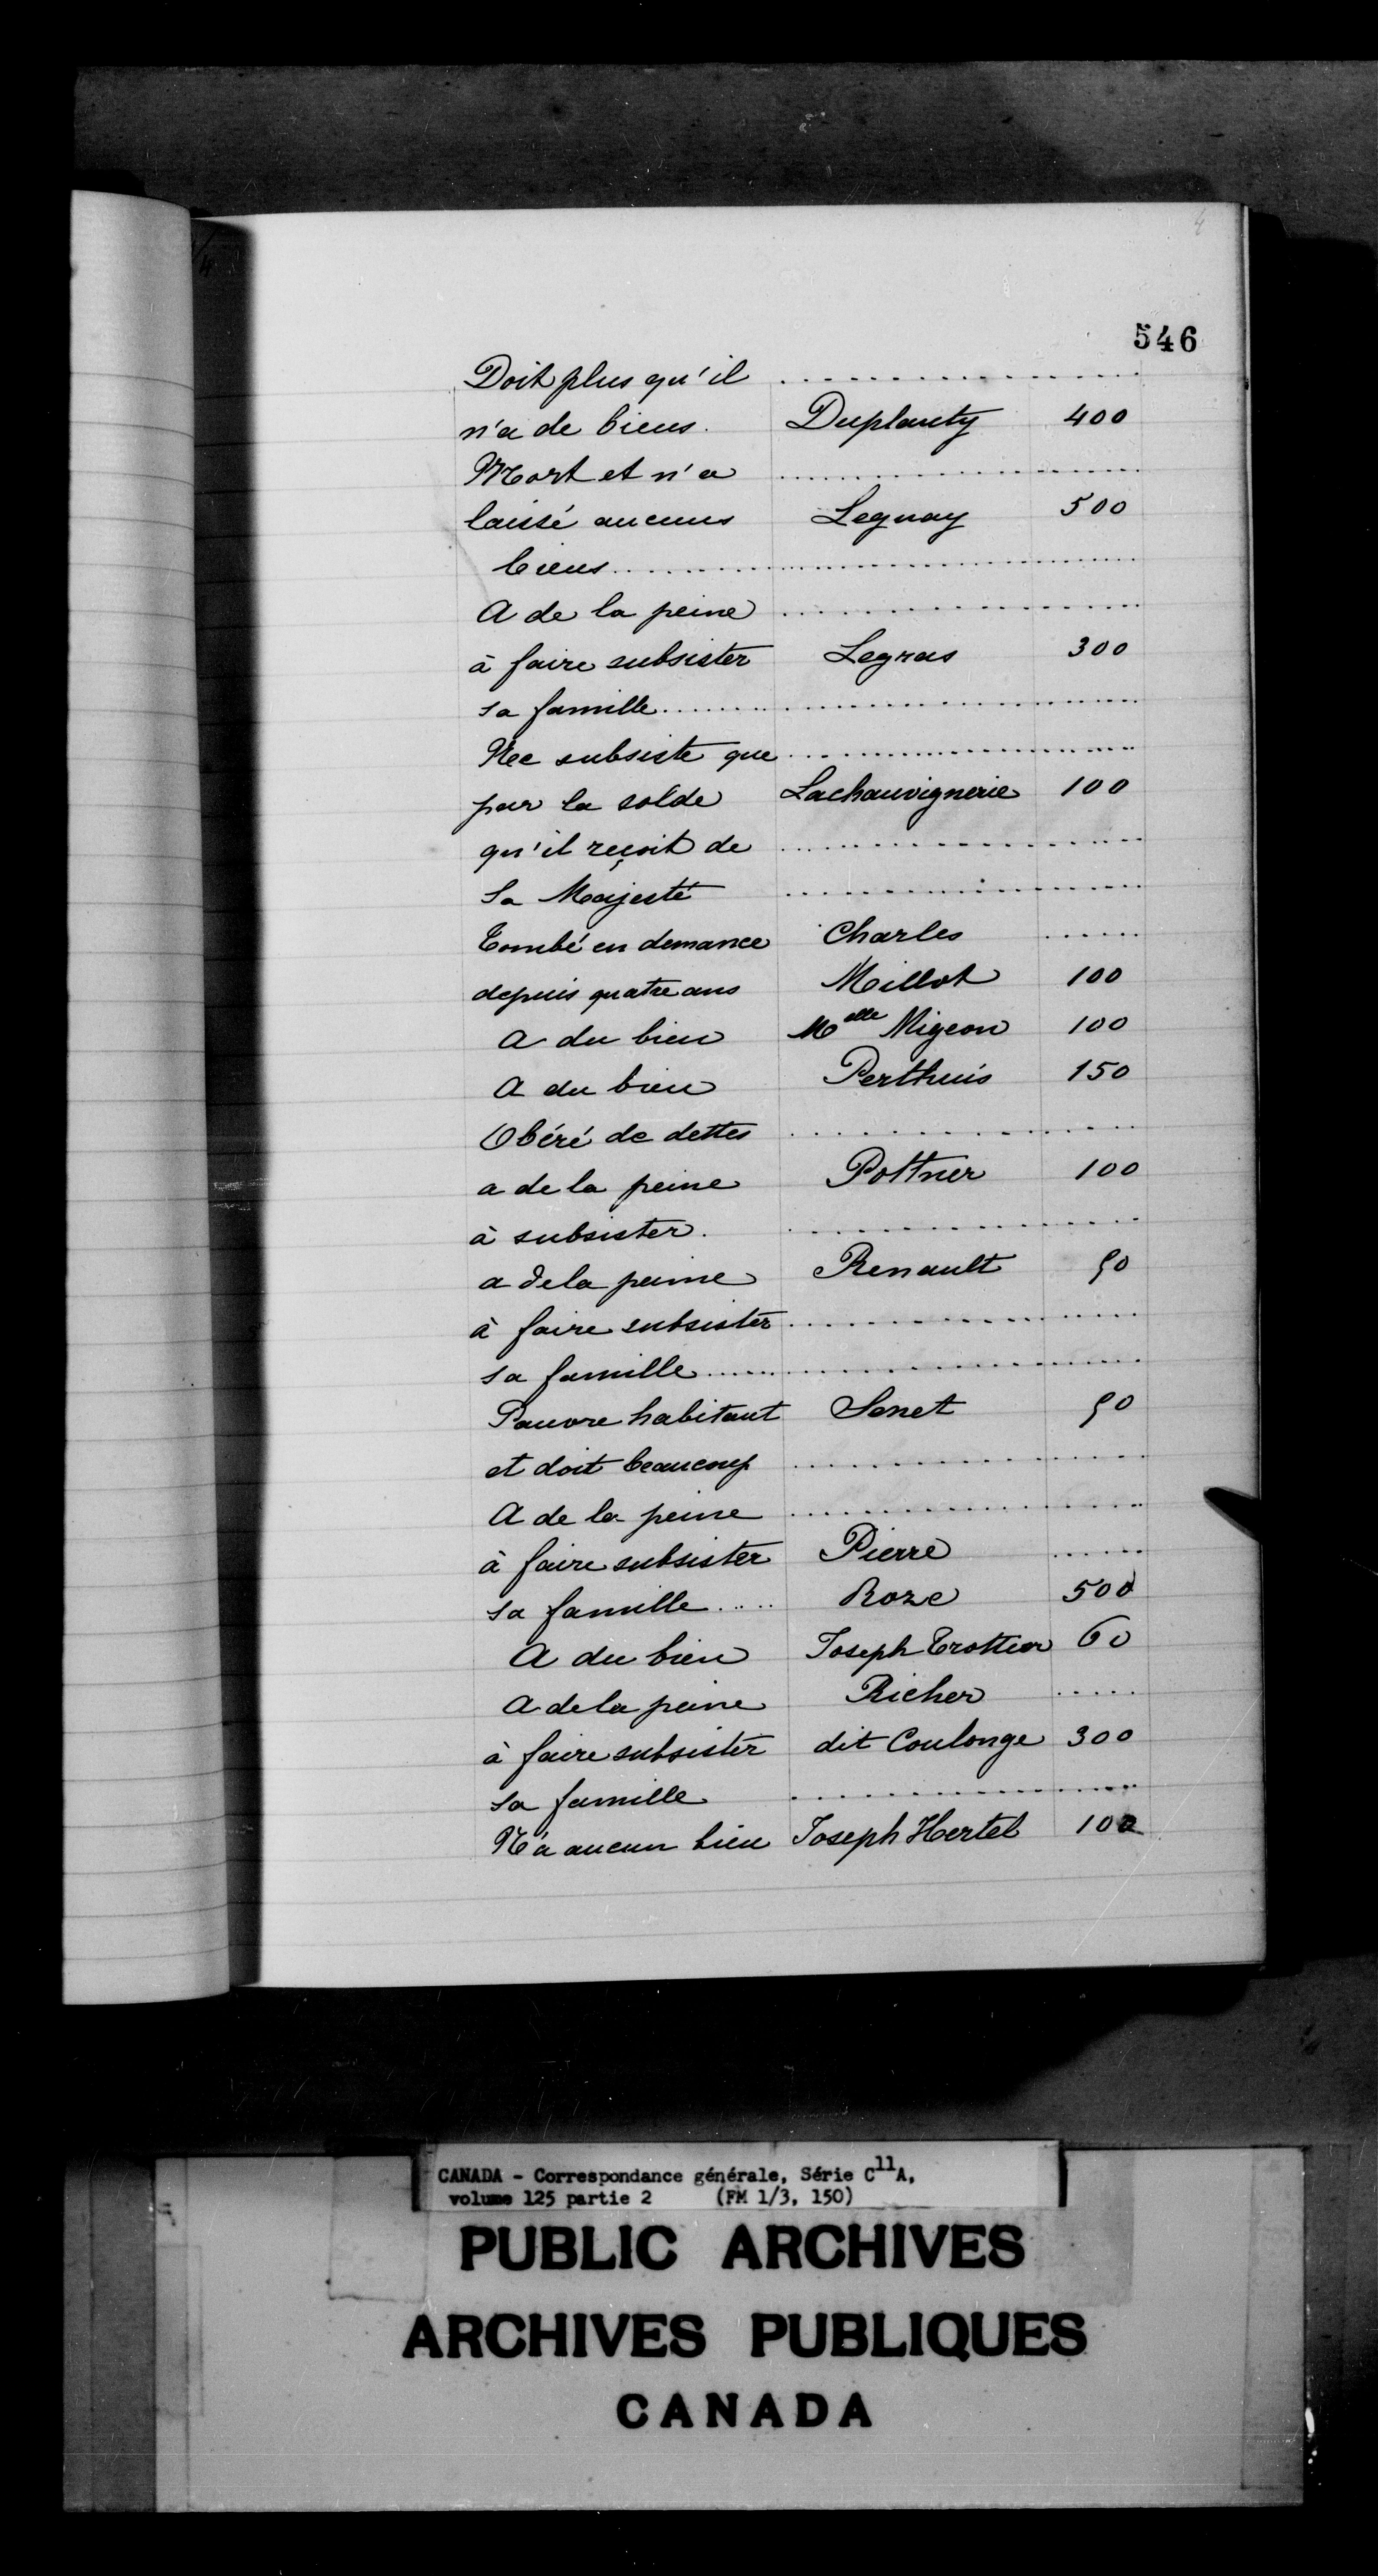 4
546
Doit plus qu'il ....................
n'a de biens. Duplanty 400
Mort et n'a ....................
laissé aucuns Leguay 500
biens ....................
A de la peine ....................
à faire subsister Legras 300
sa famille ....................
Ne subsiste que ....................
par la solde Lachauvignerie 100
qu'il reçoit de ....................
Sa Majesté ....................
Tombé en demance Charles ......
depuis quatre ans Millot 100
A du bien Melle Migeon 100
A du bien Perthuis 150
Obéré de dettes ....................
a de la peine Pottner 100
à subsister. ....................
a de la peine Renault 50
à faire subsister ....................
sa famille ....................
Pauvre habitant Senet 50
et doit beaucoup ....................
A de la peine ....................
à faire subsister Pierre ......
sa famille ..... Roze 500
A du bien Joseph Trottier 60
A de la peine Richer .....
à faire subsister dit Coulonge 300
sa famille ....................
N'a aucun bien Joseph Hertel 100
CANADA - Correspondance générale, Série C11A,
volume 125 partie 2 (FM 1/3, 150)
PUBLIC ARCHIVES
ARCHIVES PUBLIQUES
CANADA